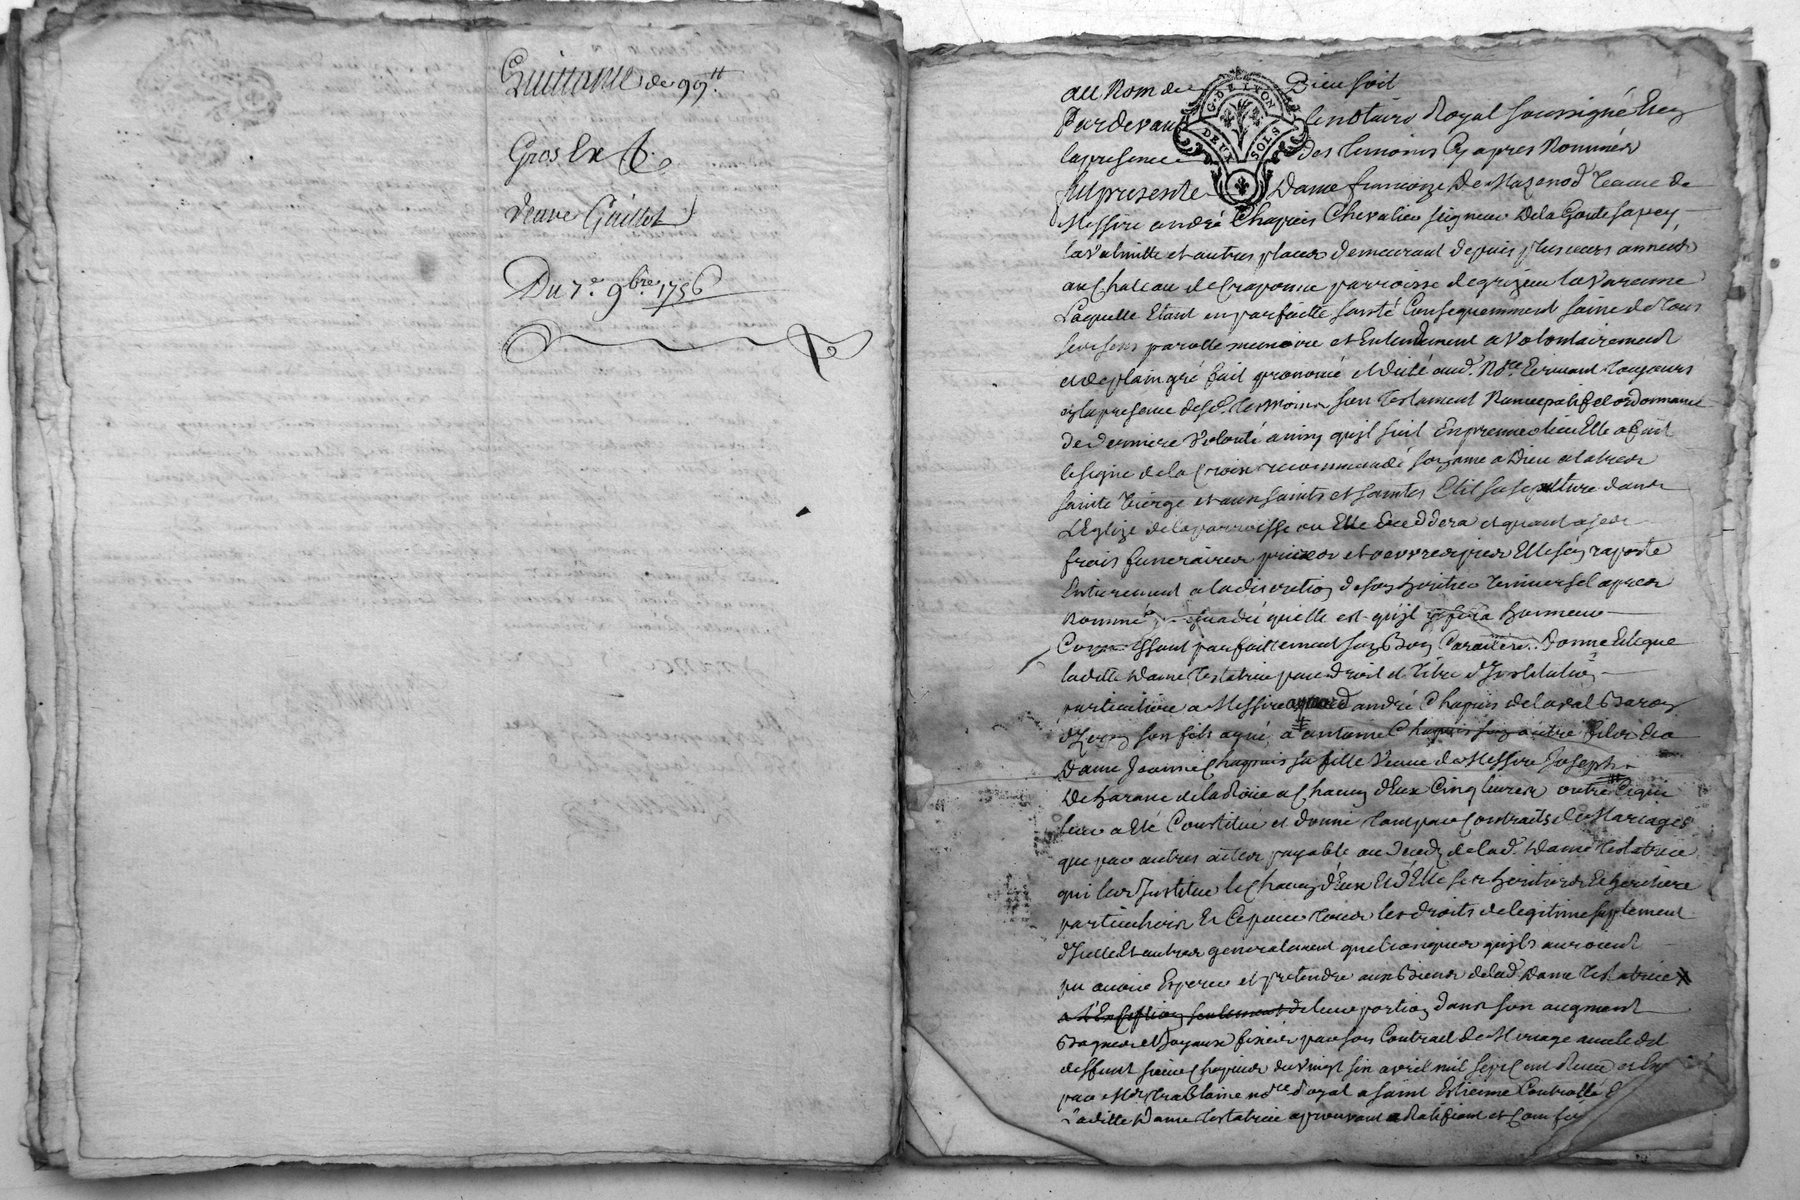 Quittance de 99ᵗᵗ.
Gros Ex
veuve Guillot
Du 7e. 9bre. 1756
G. DE LYON
DEUX SOLS
au Nom de Dieu soit
Pardevant le notaire Royal soussigné Et en
la presence des temoins Cy apres Nommés
fut presente Dame françoize De Mazenod Veuve de
Messire andré Chapuis Chevalier seigneur De la Goute sapey
et autres places demeurant depuis plusieurs années
au Chateau de Craponne parroisse de grizieu la Varenne
Laquelle Etant en parfaitte santé Consequemment saine de tous
ses sens parolle memoire et Entendement a Volontairement
et de plain gré fait prononcé et dicté aud. Nore. Ecrivant toujours
en la presence desd. temoins son testament Nuncupatif et ordonnance
de derniere Volonté ainsy qu'il suit En premier lieu Elle a fait
le signe de la Croix recommandé son ame a Dieu a la tres
sainte Vierge et aux saints et saintes Elit sa sepulture dans
L'Eglize de la parroisse ou Elle deceddera et quant a ses
frais funeraires prieres et oeuvres pies Elle s'en raporte
Entierement a la discretion de son heritier universel apres
Nommé persuadée quelle est qu'il y fera honneur
Connoissant parfaittement son Bon Caractere. Donne Legue
laditte Dame testatrice par droit et titre d'Institution
particuliere a Messire andré Chapuis de laval Baron
d' son fils ayné, a antoine Chapuis son autre fils et a
Dame Jeanne Chapuis sa fille Veuve de Messire Joseph
De harane de la Roüe a Chacun d'Eux Cinq livres outre Ce qui
leur a Eté Constitué et donné tant par Contraits de Mariages
que par autres actes payable au deceds de lad. Dame testatrice
qui les Institue le Chacun d'Eux Et d'Elle ses heritiers Et heritiere
particuliers Et Ce pour tous les droits de legitime suplement
d'Icelle Et autres generalement quelconques qu'ils auroient
pu avoir Esperer et pretendre aux Biens de lad. Dame testatrice
a L'Exception seulement de leur portion dans son augment
Bagues et Joyaux fixés par son Contract de Mariage avec led.
deffunt sieur Chapuis du Vingt six avril mil sept Cent
par Me. tablaine nore. Royal a saint Estienne Controllé
Laditte Dame testatrice aprouvant Ratifiant et